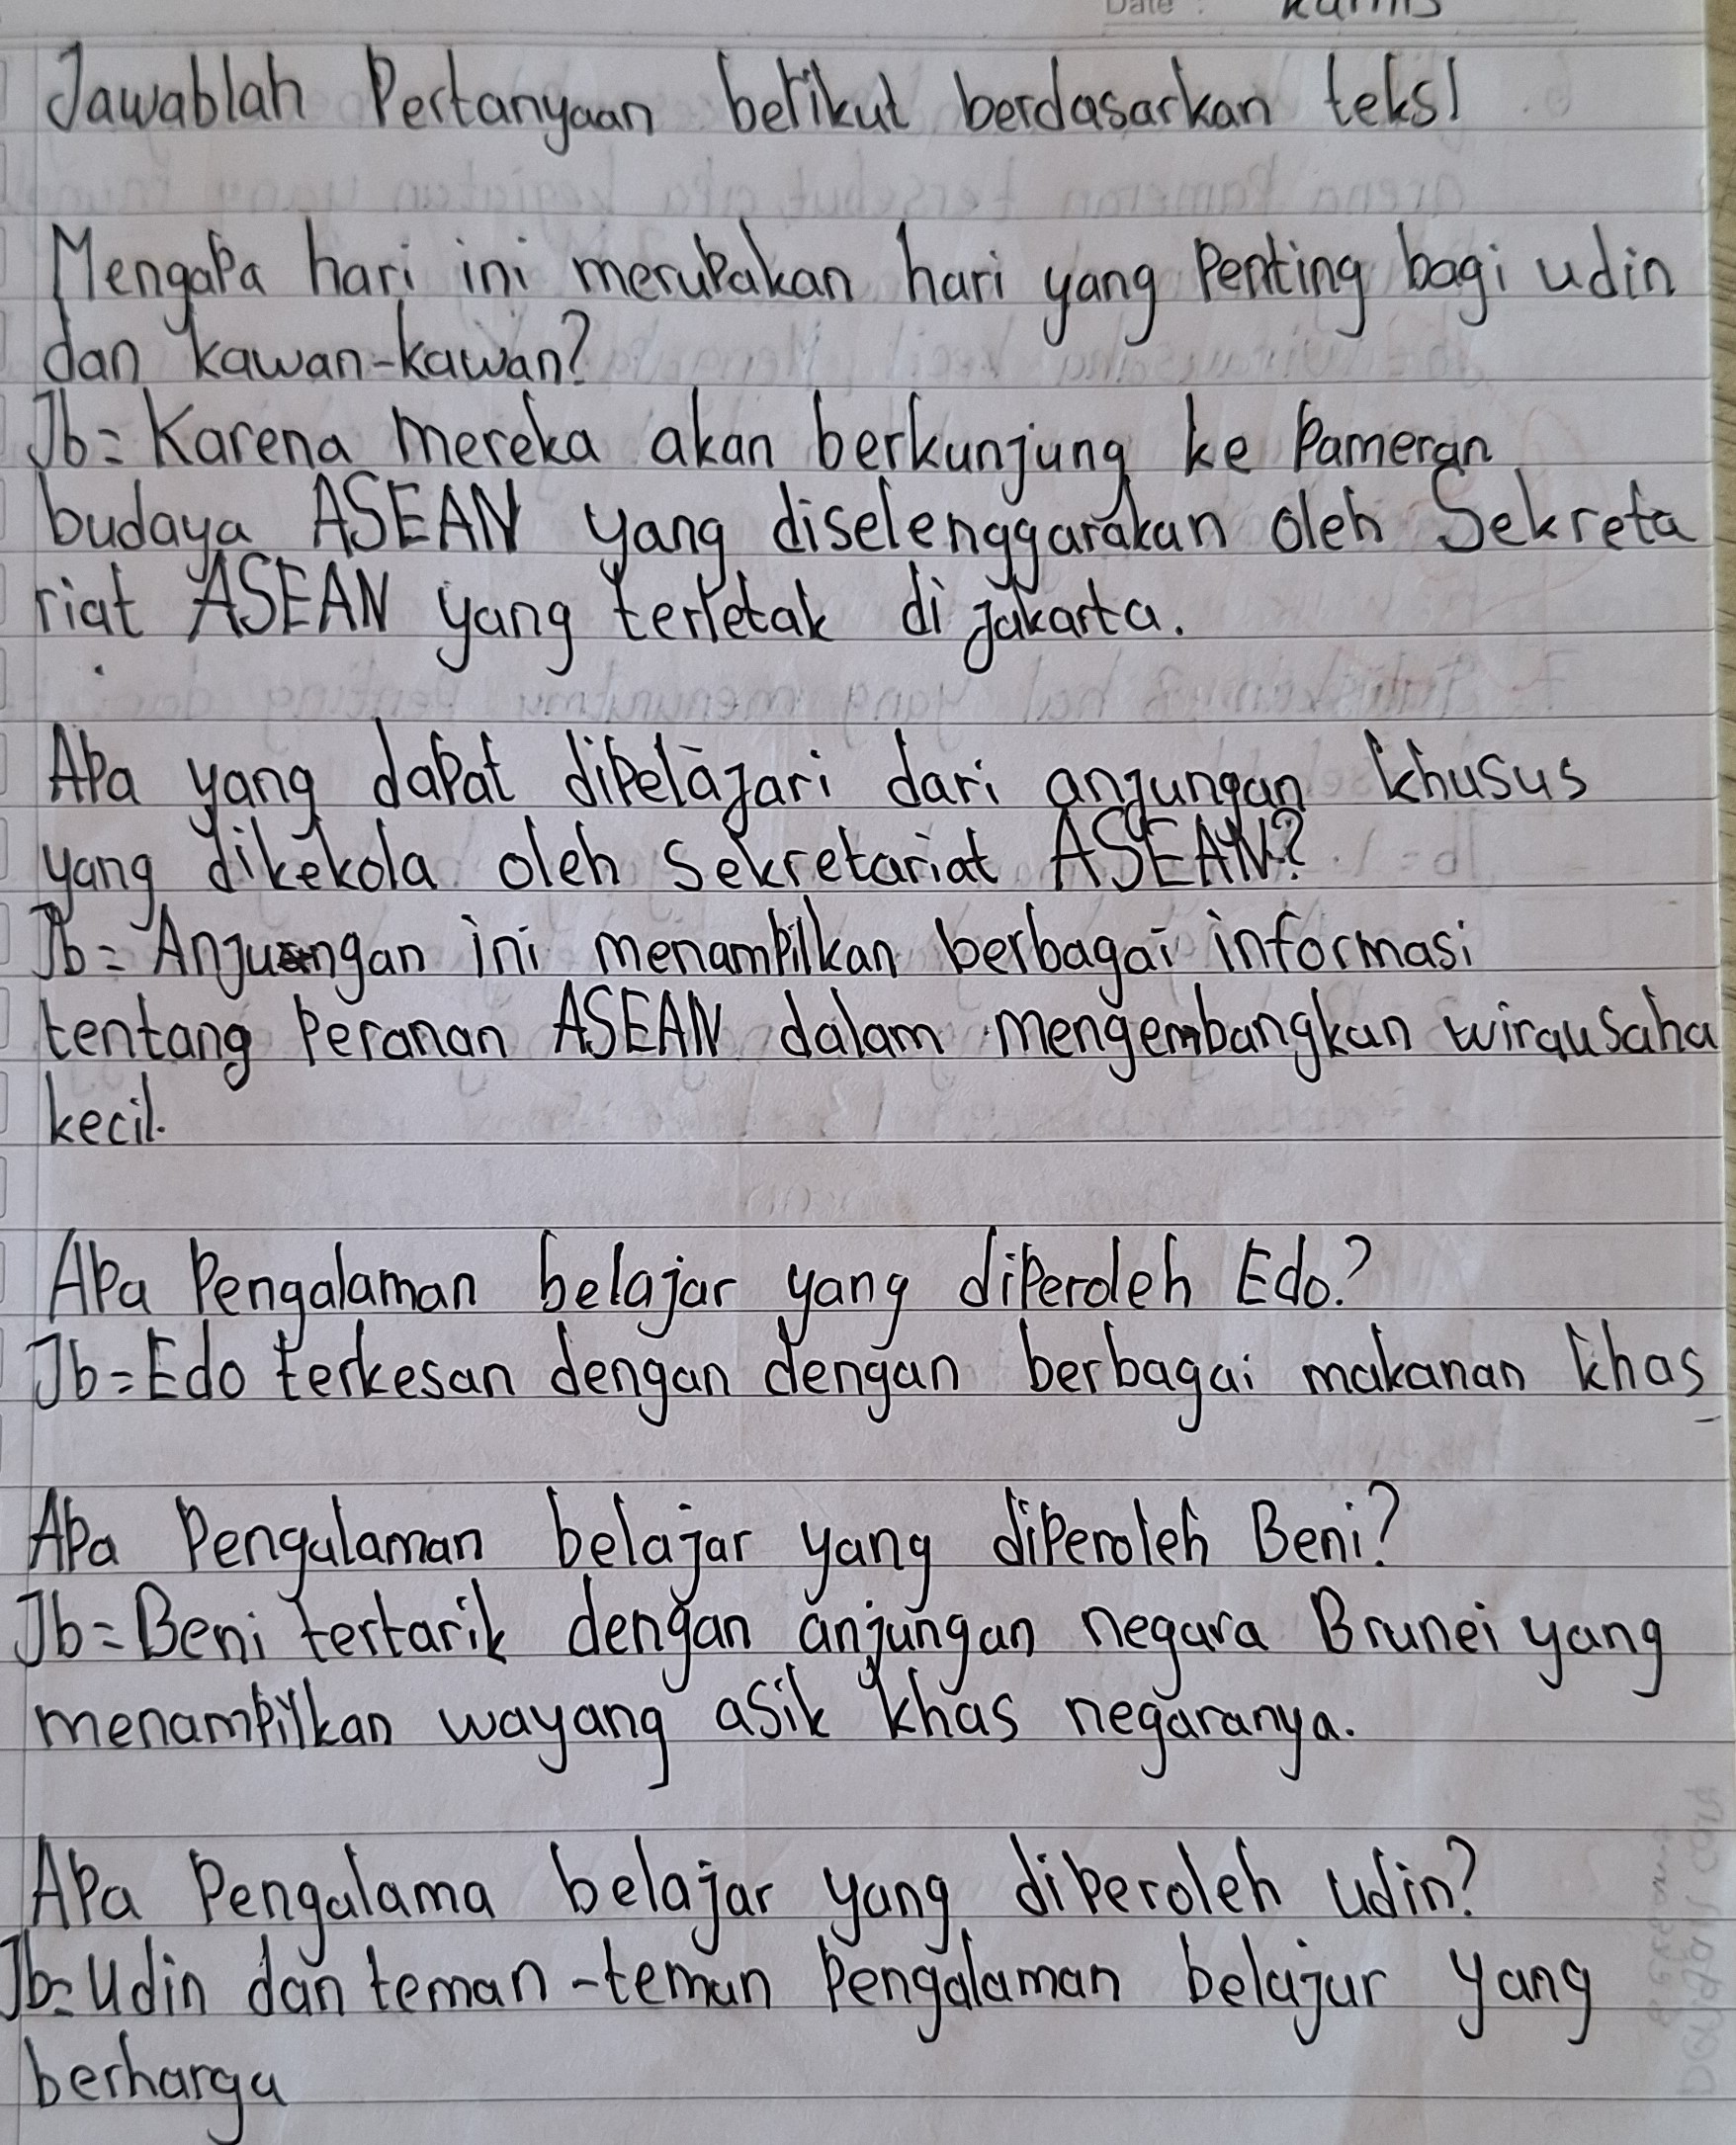 Date :
Jawablah Pertanyaan berikut berdasarkan teks!
Mengapa hari ini merupakan hari yang Penting bagi udin
dan kawan-kawan?
Jb= Karena mereka akan berkunjung ke Pameran
budaya ASEAN yang diselenggarakan oleh Sekreta
riat ASEAN yang terletak di jakarta.
Apa yang dapat dipelajari dari anjungan khusus
yang dikekola oleh sekretariat ASEAN?
Jb= Anjungan ini menampilkan berbagai informasi
tentang Peranan ASEAN dalam mengembangkan wirausaha
kecil.
Apa Pengalaman belajar yang diperoleh Edo?
Jb= Edo terkesan dengan dengan berbagai makanan khas
Apa Pengalaman belajar yang diperoleh Beni?
Jb= Beni tertarik dengan anjungan negara Brunei yang
menampilkan wayang asik khas negaranya.
Apa Pengalama belajar yang diperoleh udin?
Jb= Udin dan teman-teman Pengalaman belajar yang
berharga